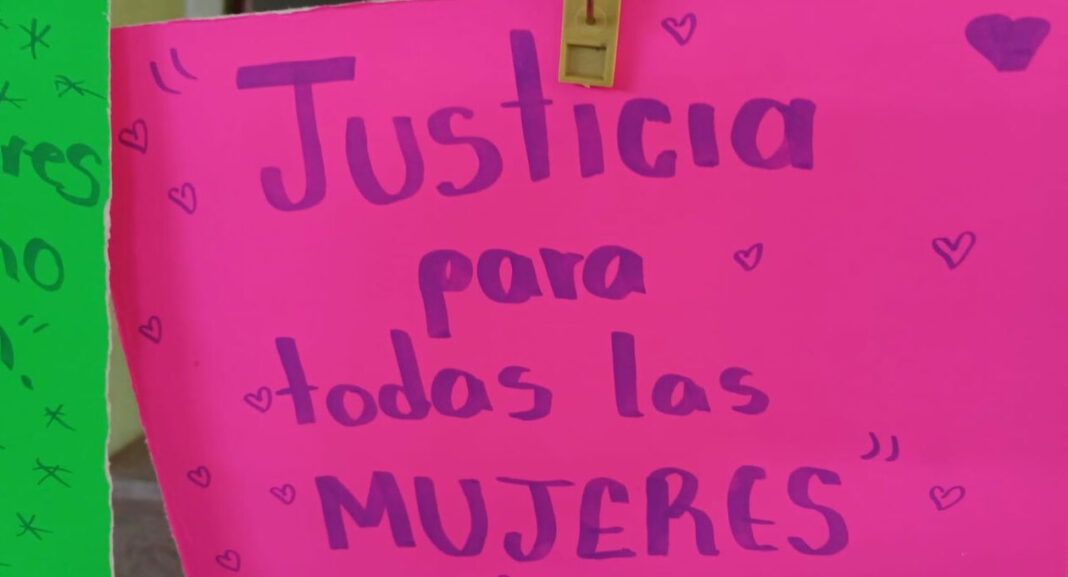 "Justicia
para
todas las
MUJERES"